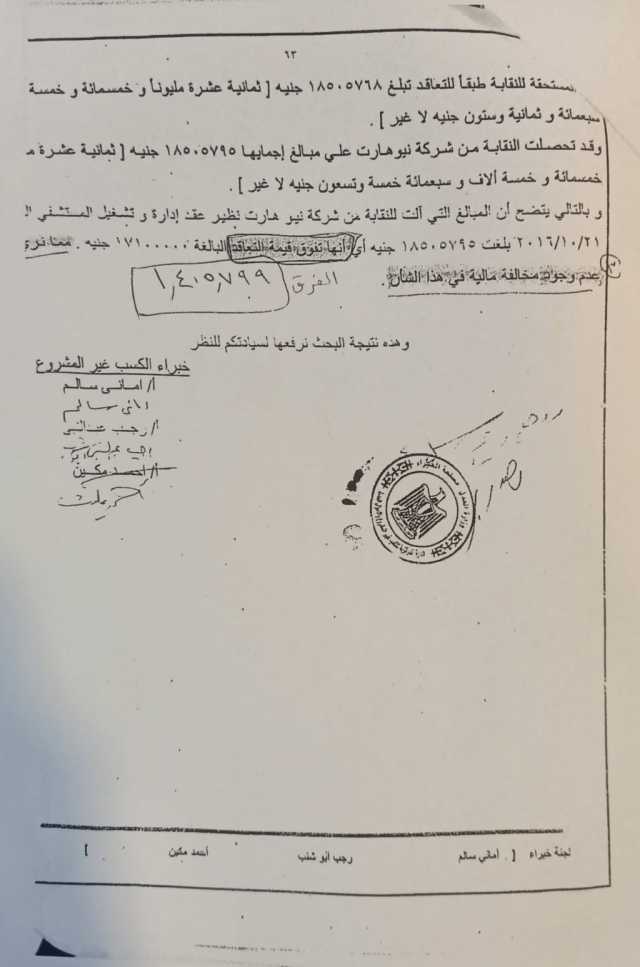 ٦٣
المستحقة للنقابة طبقاً للتعاقد تبلغ ١٨٥٠٥٧٦٨ جنيه [ ثمانية عشرة مليوناً و خمسمائة و خمسة
سبعمائة و ثمانية وستون جنيه لا غير ] .
وقد تحصلت النقابة من شركة نيوهارت علي مبالغ إجماليها ١٨٥٠٥٧٩٥ جنيه [ ثمانية عشرة م
خمسمائة و خمسة ألاف و سبعمائة خمسة وتسعون جنيه لا غير ] .
و بالتالي يتضح أن المبالغ التي آلت للنقابة من شركة نيو هارت نظير عقد إدارة و تشغيل المستشفي ال
٢٠١٦/١٠/٢١ بلغت ١٨٥٠٥٧٩٥ جنيه أي أنها تفوق قيمة التعاقد البالغة ١٧١٠٠٠٠٠ جنيه . مما نري
عدم وجود مخالفة مالية في هذا الشأن .
الفرق ١,٤٠٥,٧٩٩
وهذه نتيجة البحث نرفعها لسيادتكم للنظر
خبراء الكسب غير المشروع
أ/ اماني سالم
اماني سالم
أ/ رجب
أ/ احمد مكين
لجنة خبراء [ . أماني سالم رجب أبو شنب أحمد مكين ]